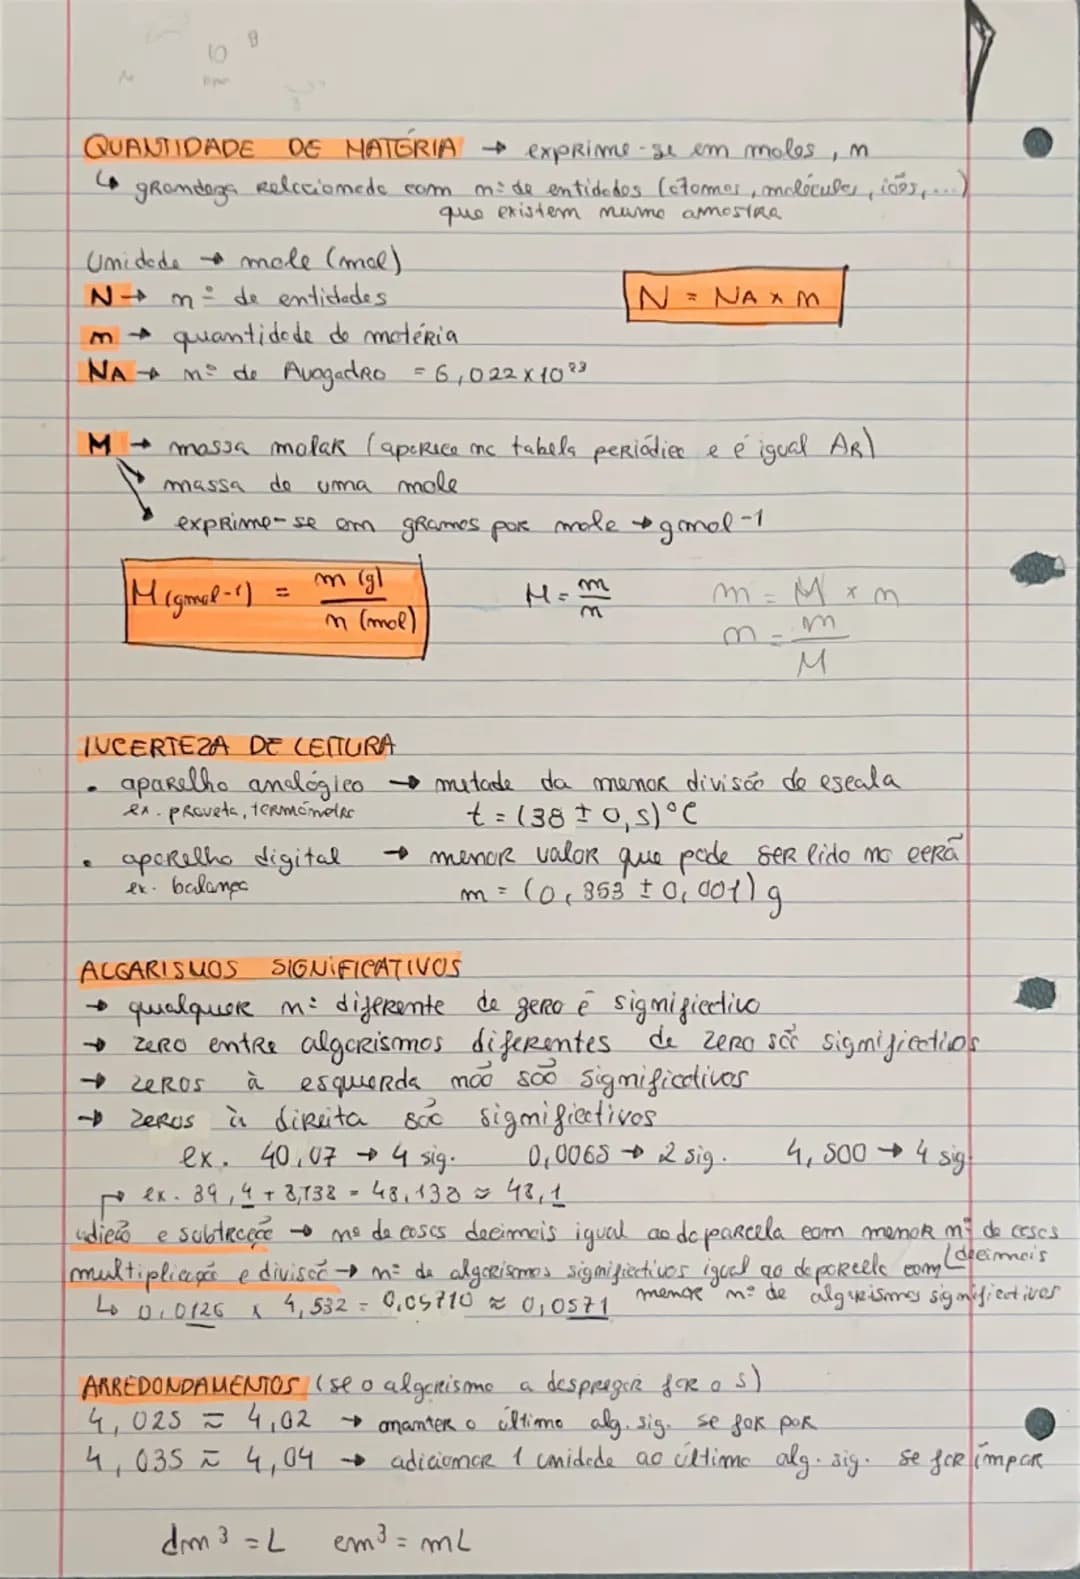 QUANTIDADE DE MATÉRIA → exprime-se em moles, n
↳ grandeza relacionada com nº de entidades (átomos, moléculas, iões, ...)
que existem numa amostra
Unidade → mole (mol)
N → nº de entidades
N = NA x n
n → quantidade de matéria
NA → nº de Avogadro = 6,022x10²³
M → massa molar (aparece na tabela periódica e é igual Ar)
massa de uma mole
exprime-se em gramas por mole → gmol-1
M(gmol-1) = m (g) / n (mol)
M = m / n
m = M x n
n = m / M
INCERTEZA DE LEITURA
• aparelho analógico → metade da menor divisão da escala
ex. proveta, termómetro
t = (38 ± 0,5)°C
• aparelho digital → menor valor que pode ser lido no ecrã
ex. balança
m = (0,353 ± 0,001) g
ALGARISMOS SIGNIFICATIVOS
→ qualquer nº diferente de zero é significativo
→ zero entre algarismos diferentes de zero são significativos
→ zeros à esquerda não são significativos
→ zeros à direita são significativos
ex. 40,07 → 4 sig. 0,0065 → 2 sig. 4,500 → 4 sig
ex. 39,4 + 8,738 = 48,138 ≈ 48,1
adição e subtração → nº de casas decimais igual ao da parcela com menor nº de casas decimais
multiplicação e divisão → nº de algarismos significativos igual ao da parcela com
menor nº de algarismos significativos
↳ 0,0126 x 4,532 = 0,05710 ≈ 0,0571
ARREDONDAMENTOS (se o algarismo a desprezar for o 5)
4,025 ≈ 4,02 → manter o último alg. sig. se for par
4,035 ≈ 4,04 → adicionar 1 unidade ao último alg. sig. se for ímpar
dm³ = L cm³ = mL